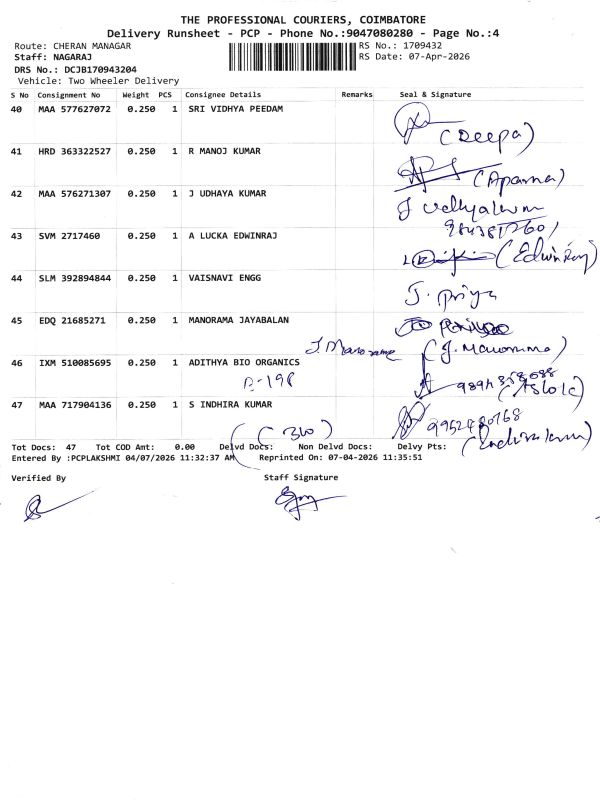 THE PROFESSIONAL COURIERS, COIMBATORE
Delivery Runsheet - PCP - Phone No.:9047080280 - Page No.:4
Route: CHERAN MANAGAR
RS No.: 1709432
Staff: NAGARAJ
RS Date: 07-Apr-2026
DRS No.: DCJB170943204
Vehicle: Two Wheeler Delivery
S No Consignment No Weight PCS Consignee Details Remarks Seal & Signature
40 MAA 577627072 0.250 1 SRI VIDHYA PEEDAM
(Deepa)
41 HRD 363322527 0.250 1 R MANOJ KUMAR
(Aparna)
42 MAA 576271307 0.250 1 J UDHAYA KUMAR
43 SVM 2717460 0.250 1 A LUCKA EDWINRAJ
(Edwin Raj)
44 SLM 392894844 0.250 1 VAISNAVI ENGG
J. Priya
45 EDQ 21685271 0.250 1 MANORAMA JAYABALAN
J. Manorama (J. Manorama)
46 IXM 510085695 0.250 1 ADITHYA BIO ORGANICS
B-198
47 MAA 717904136 0.250 1 S INDHIRA KUMAR
9952480768
Tot Docs: 47 Tot COD Amt: 0.00 Delvd Docs: Non Delvd Docs: Delvy Pts:
Entered By :PCPLAKSHMI 04/07/2026 11:32:37 AM Reprinted On: 07-04-2026 11:35:51
Verified By Staff Signature